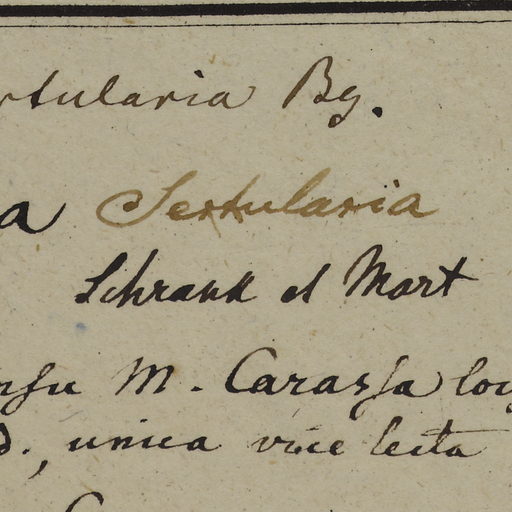 rtularia Bg.
a Sertularia
Schrank et Mart
M. Carassa
d., unica vice lecta